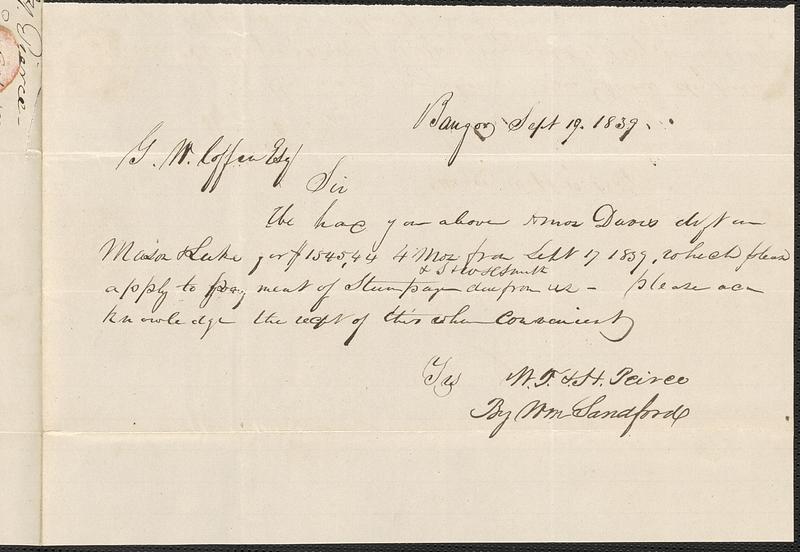 Peirce
Bangor Sept 19. 1839.
G. W. Coffin Esq
Sir
We hand you above Amos Davis dft on
Mason & Lake, for $1545,44 4 Mos from Sept 17 1839, which please
& S & W H Smith
apply to pay ment of Stumpage due from us – please ack
knowledge the recpt of this when Convenient
Yrs W. T. & H. Peirce
By Wm Sandford